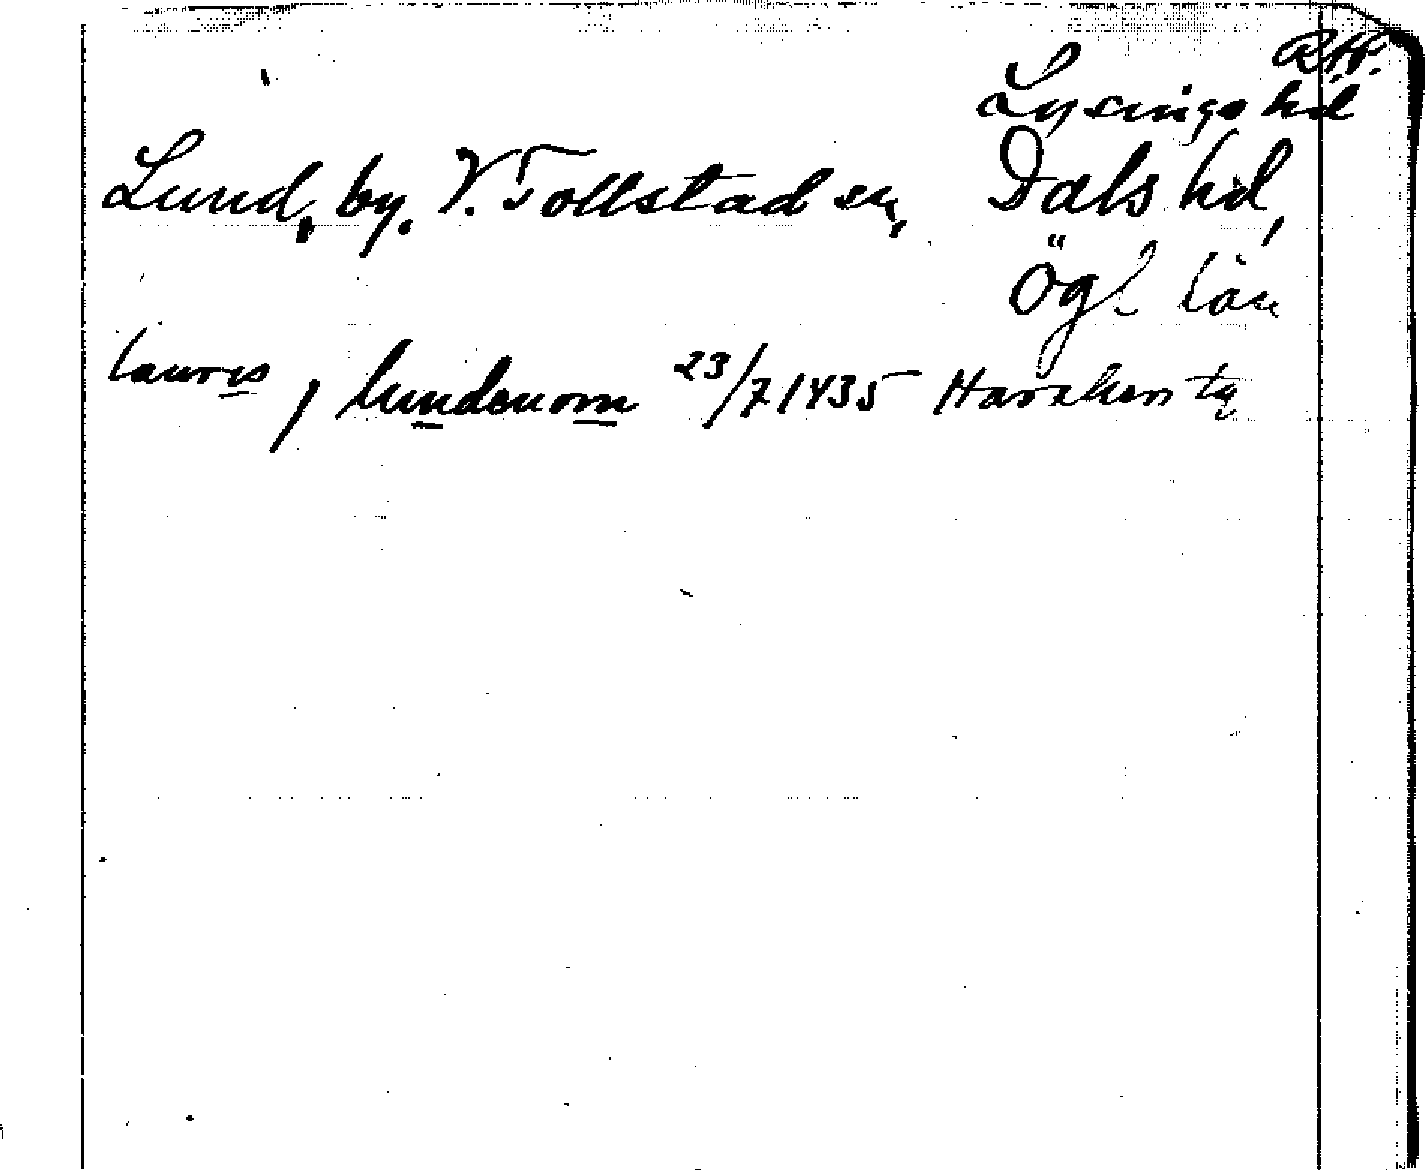 Lysings hd
Lund, by. V. Tollstad sn, Dals hd,
Ögl. län
lauris, i lundenom 23/7 1435